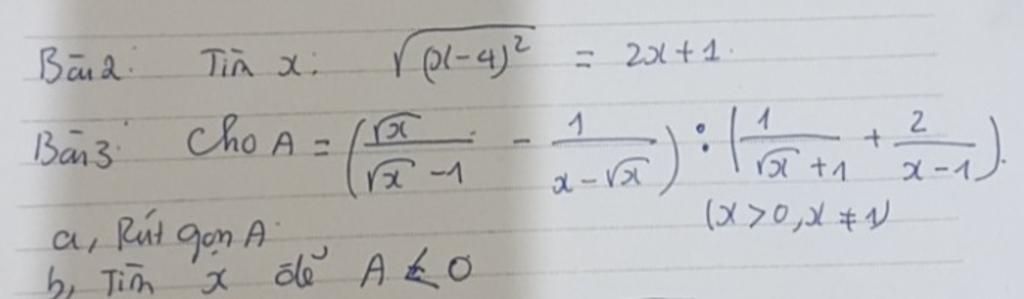 Bài 2: Tìm x: √(x-4)² = 2x+1.
Bài 3: Cho A = (√x/(√x -1) - 1/(x-√x)) : (1/(√x +1) + 2/(x-1)).
(x>0, x≠1)
a, Rút gọn A.
b, Tìm x để A < 0